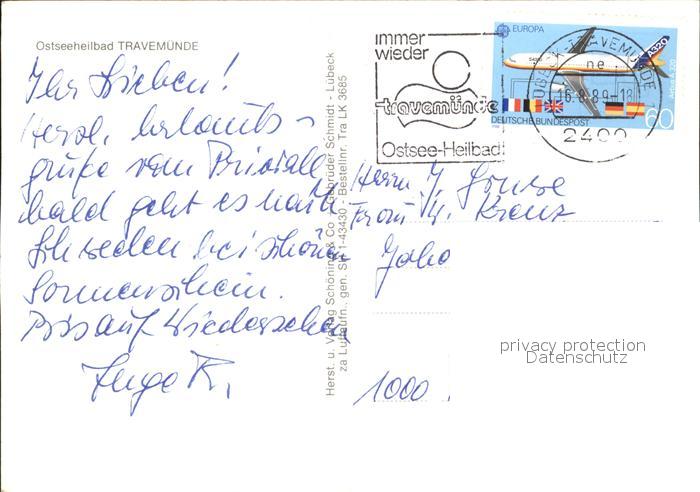 Ostseeheilbad TRAVEMÜNDE
Ihr Lieben!
Herzl. Urlaubs-
grüße vom Priwall
bald geht es nach
Schweden bei schönen
Sonnenschein.
Bis auf Wiedersehen
Inge K.
Herst. u. Verlag Schöning & Co + Gebrüder Schmidt - Lübeck
za Luftaufn., gen. SH 1-43430 - Bestellnr. Tra LK 3685
immer
wieder
travemünde
Ostsee-Heilbad
EUROPA
A320
DEUTSCHE BUNDESPOST
60
LÜBECK-TRAVEMÜNDE
ne
16.8.89-18
2400
Herrn J.
Frau U. Krenz
1000
privacy protection
Datenschutz